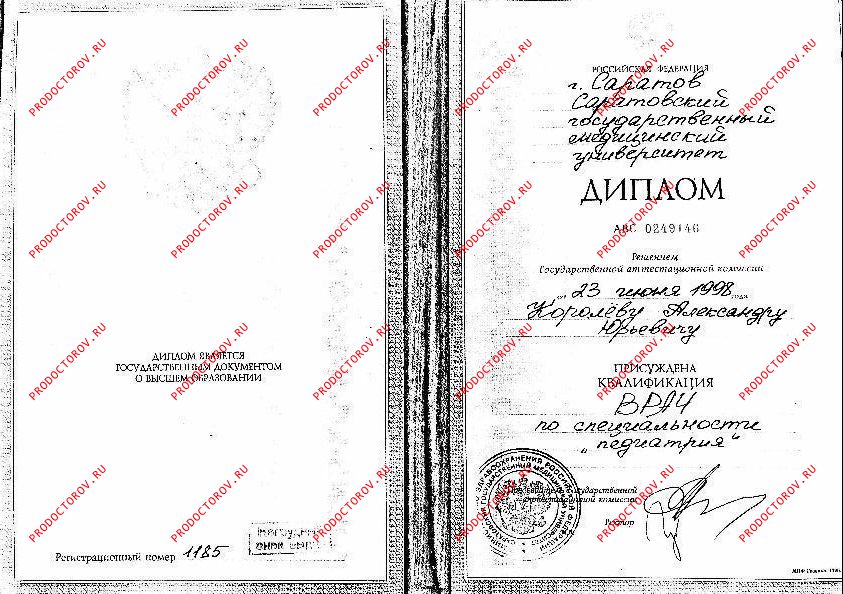 ДИПЛОМ ЯВЛЯЕТСЯ
ГОСУДАРСТВЕННЫМ ДОКУМЕНТОМ
О ВЫСШЕМ ОБРАЗОВАНИИ
Регистрационный номер 1185
РОССИЙСКАЯ ФЕДЕРАЦИЯ
г. Саратов
Саратовский
государственный
медицинский
университет
ДИПЛОМ
АВС 0249146
Решением
Государственной аттестационной комиссии
от 23 июня 1998 года
Королёву Александру
Юрьевичу
ПРИСУЖДЕНА
КВАЛИФИКАЦИЯ
ВРАЧ
по специальности
„педиатрия“
Председатель Государственной
аттестационной комиссии
Ректор
PRODOCTOROV.RU